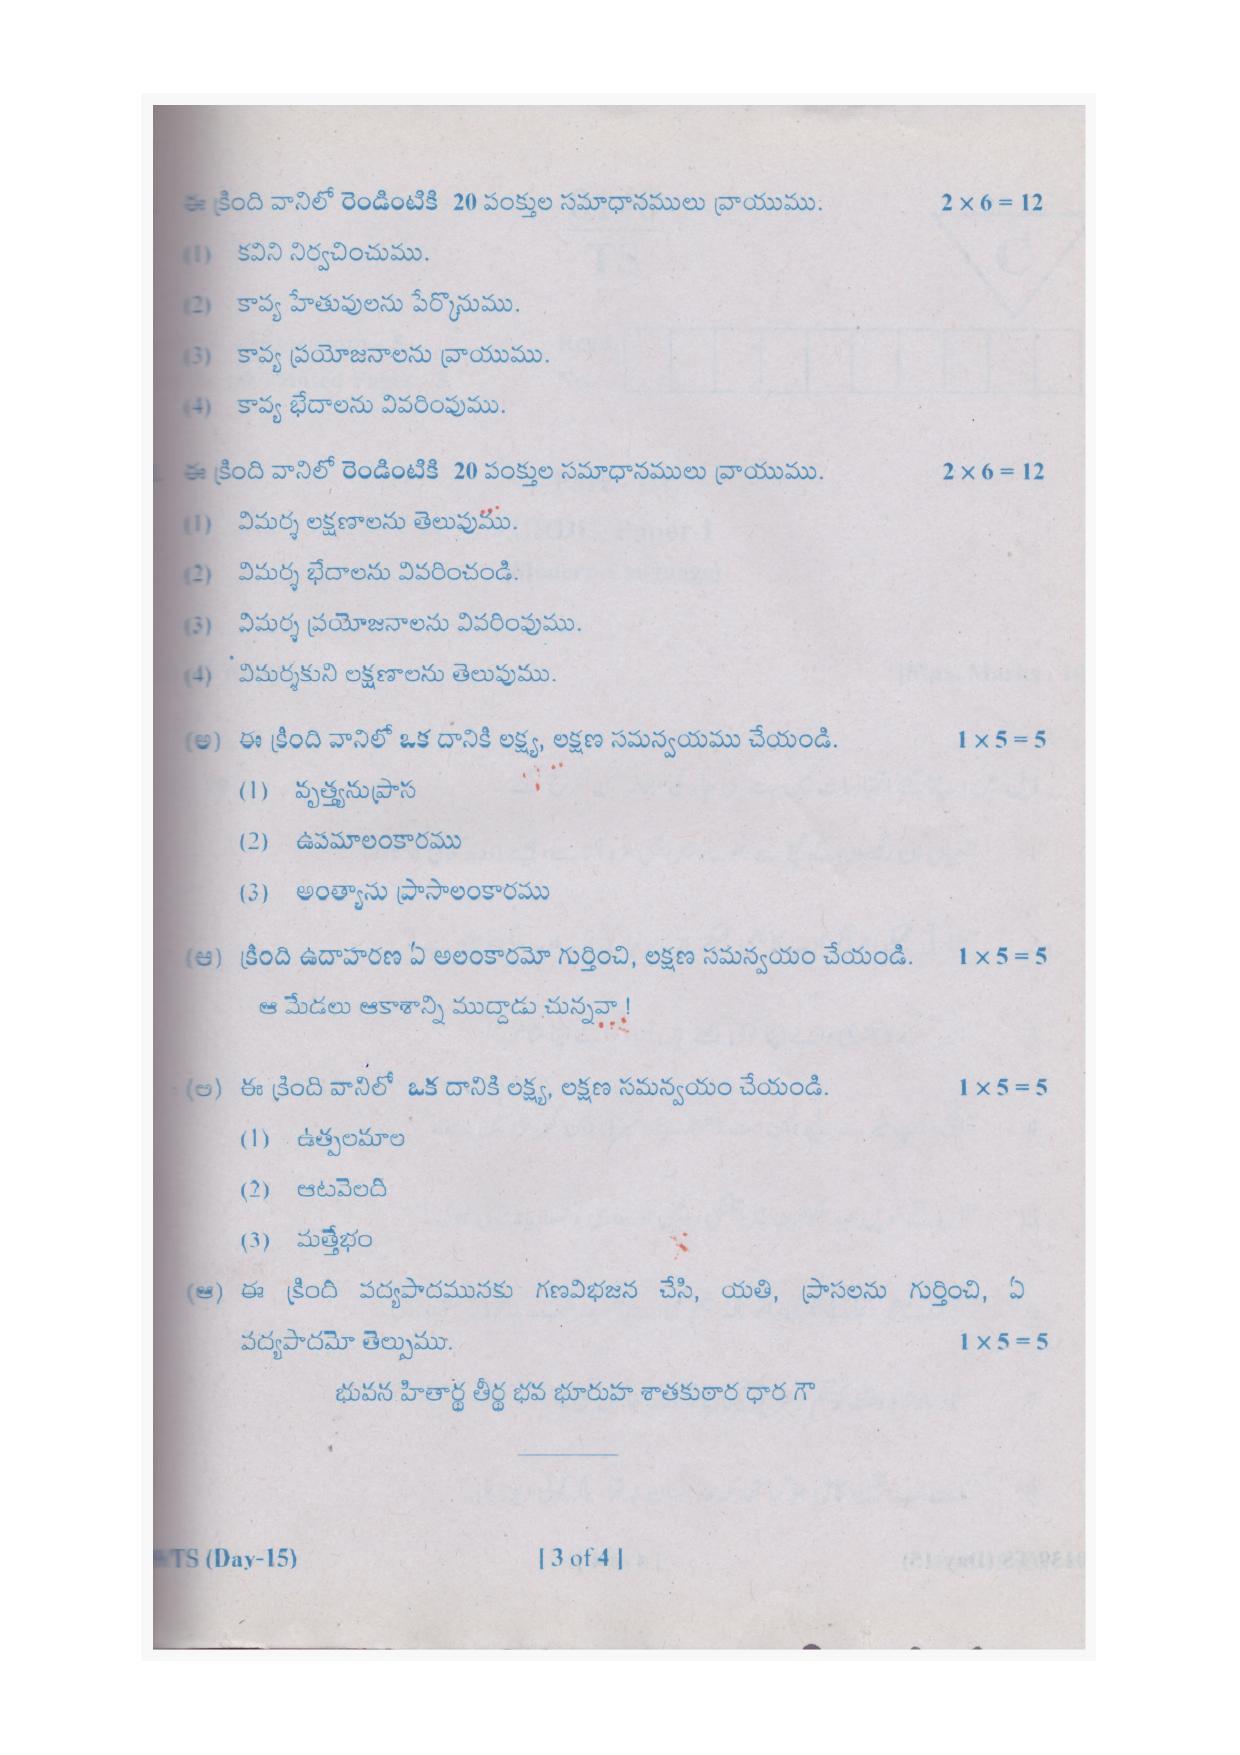 ఈ క్రింది వానిలో రెండింటికి 20 పంక్తుల సమాధానములు వ్రాయుము. 2 × 6 = 12
(1) కవిని నిర్వచించుము.
(2) కావ్య హేతువులను పేర్కొనుము.
(3) కావ్య ప్రయోజనాలను వ్రాయుము.
(4) కావ్య భేదాలను వివరింపుము.
ఈ క్రింది వానిలో రెండింటికి 20 పంక్తుల సమాధానములు వ్రాయుము. 2 × 6 = 12
(1) విమర్శ లక్షణాలను తెలుపుము.
(2) విమర్శ భేదాలను వివరించండి.
(3) విమర్శ ప్రయోజనాలను వివరింపుము.
(4) విమర్శకుని లక్షణాలను తెలుపుము.
(అ) ఈ క్రింది వానిలో ఒక దానికి లక్ష్య, లక్షణ సమన్వయము చేయండి. 1 × 5 = 5
(1) వృత్త్యనుప్రాస
(2) ఉపమాలంకారము
(3) అంత్యాను ప్రాసాలంకారము
(ఆ) క్రింది ఉదాహరణ ఏ అలంకారమో గుర్తించి, లక్షణ సమన్వయం చేయండి. 1 × 5 = 5
ఆ మేడలు ఆకాశాన్ని ముద్దాడు చున్నవా !
(అ) ఈ క్రింది వానిలో ఒక దానికి లక్ష్య, లక్షణ సమన్వయం చేయండి. 1 × 5 = 5
(1) ఉత్పలమాల
(2) ఆటవెలది
(3) మత్తేభం
(ఆ) ఈ క్రింది పద్యపాదమునకు గణవిభజన చేసి, యతి, ప్రాసలను గుర్తించి, ఏ
పద్యపాదమో తెల్పుము. 1 × 5 = 5
భువన హితార్థ తీర్థ భవ భూరుహ శాతకుఠార ధార గౌ
TS (Day-15) [ 3 of 4 ]